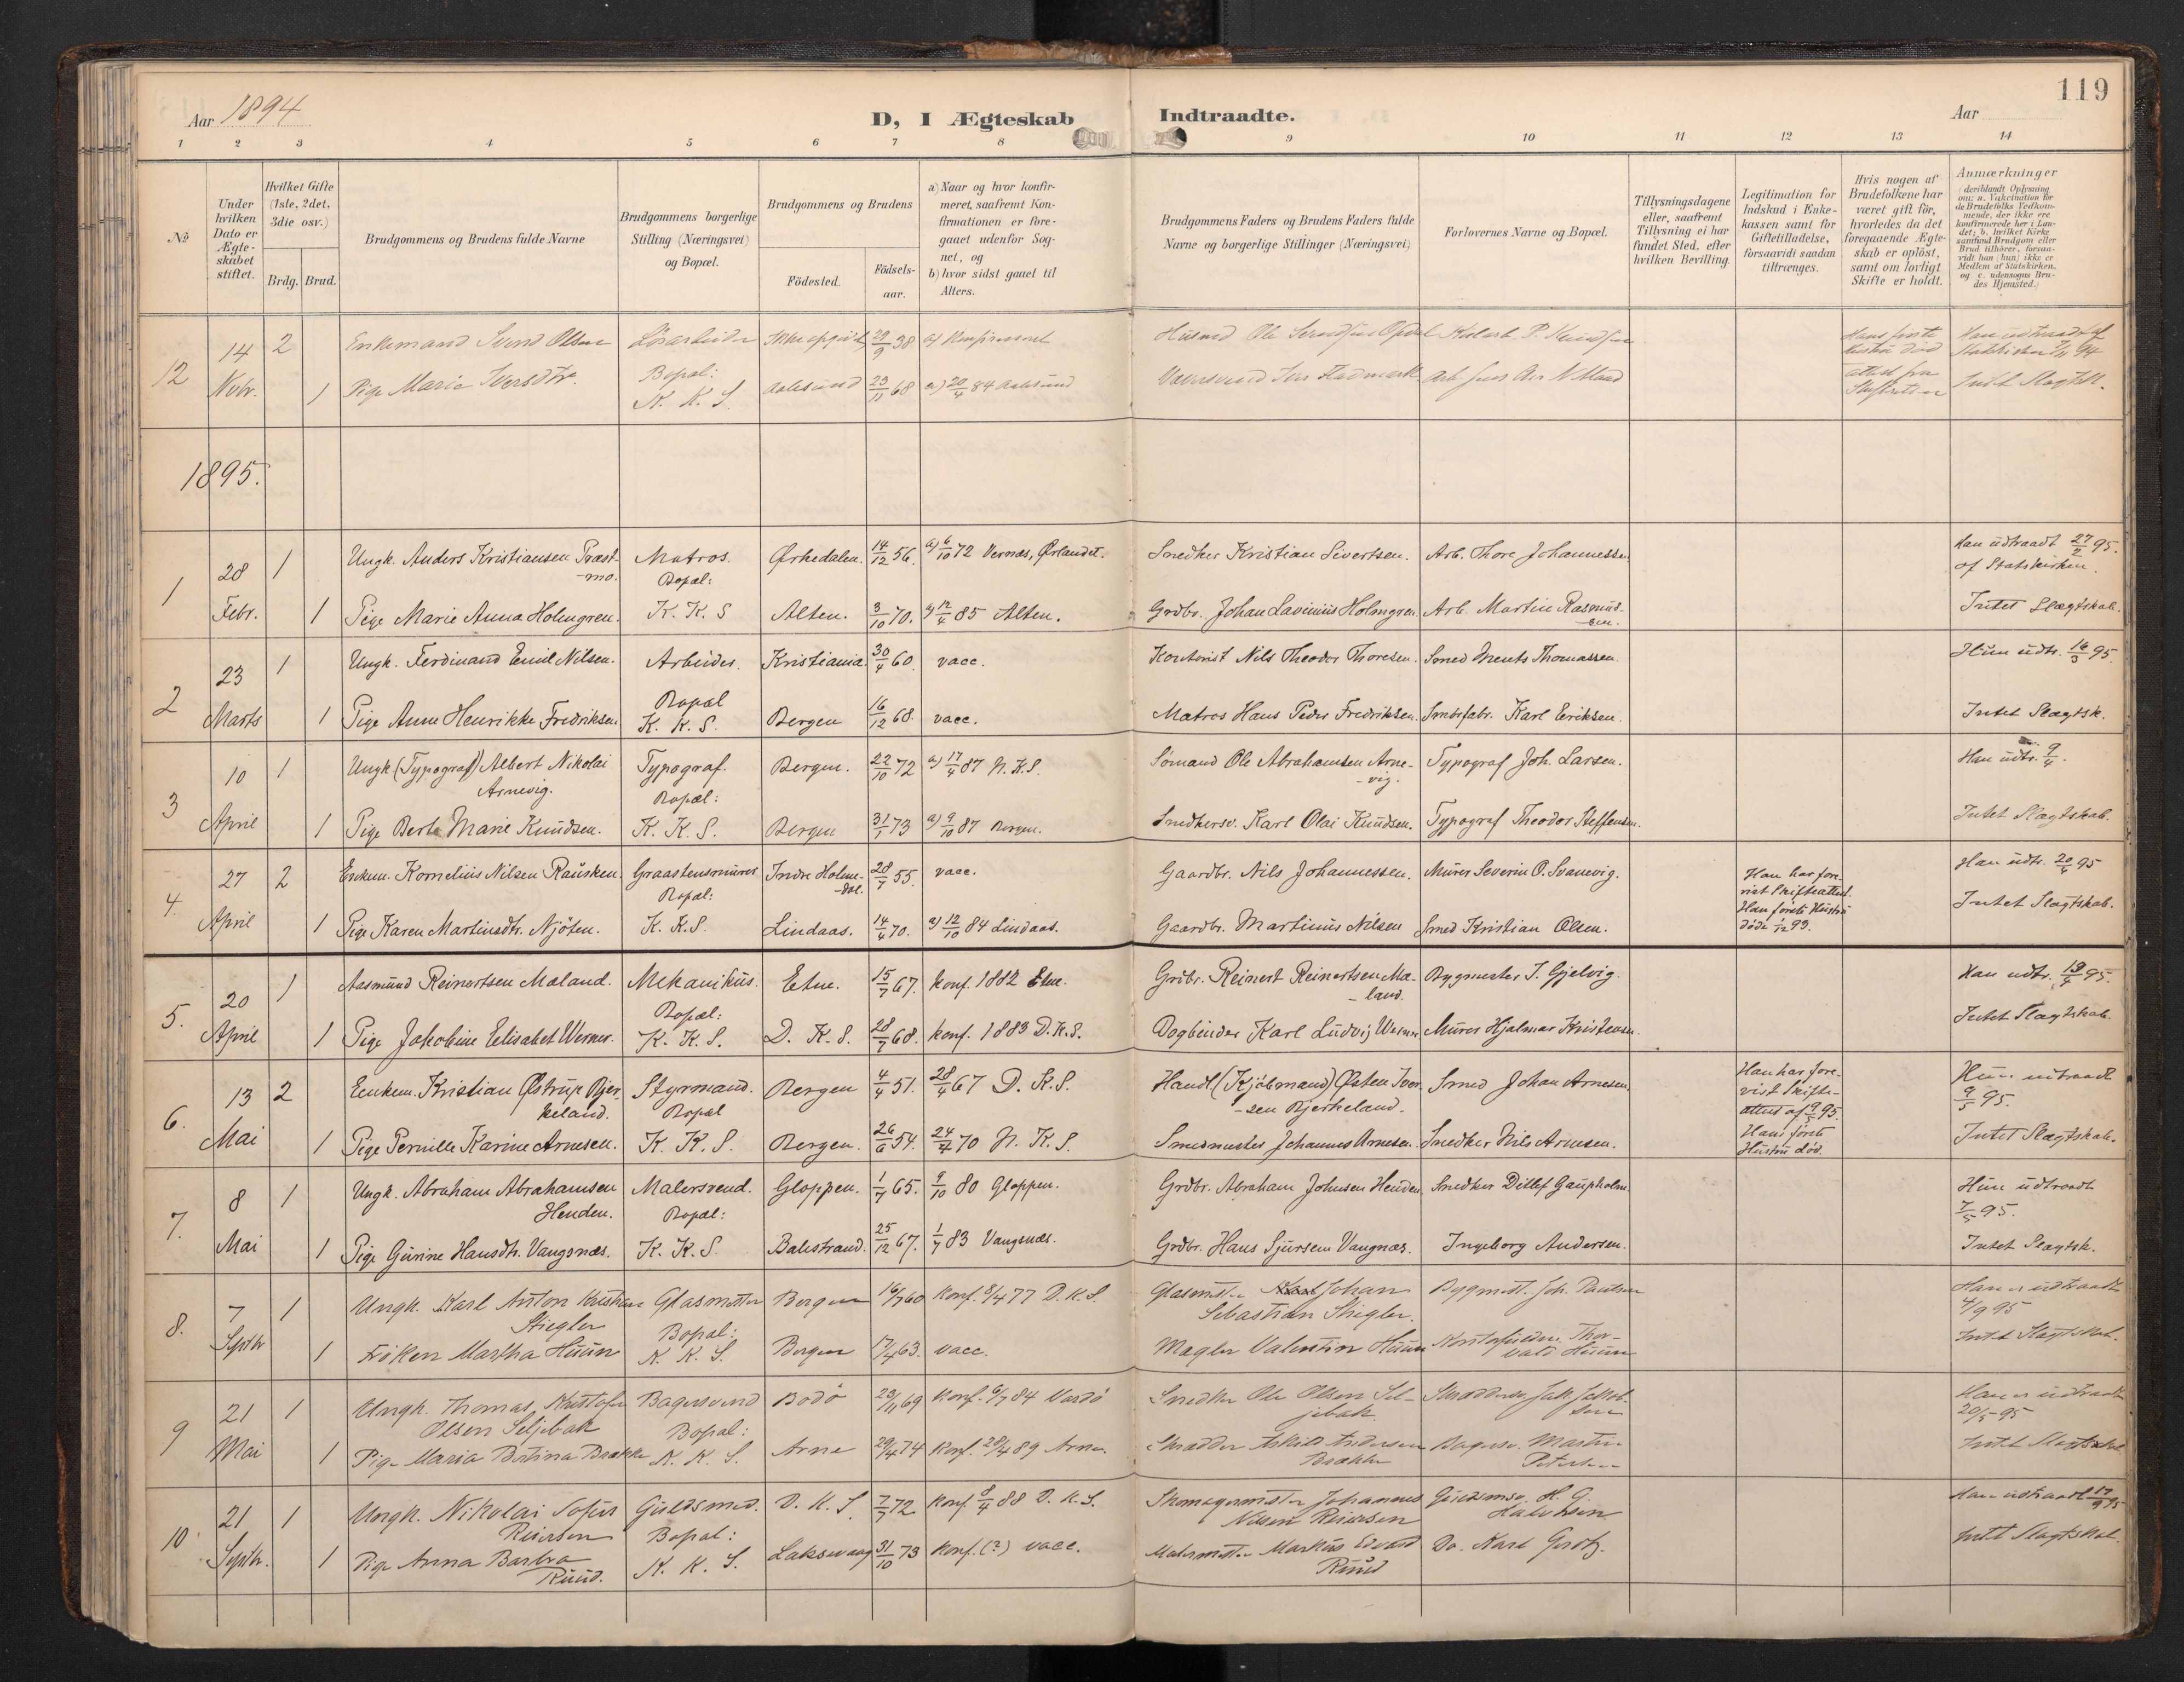 119
Aar 1894
D, I Ægteskab Indtraadte.
Aar
1 2 3 4 5 6 7 8 9 10 11 12 13 14
No
Under hvilken Dato er Ægteskabet stiftet.
Hvilket Gifte (1ste, 2det, 3die osv.)
Brdg. Brud.
Brudgommens og Brudens fulde Navne
Brudgommens borgerlige Stilling (Næringsvei) og Bopæl.
Brudgommens og Brudens
Födested.
Födsels-aar.
a) Naar og hvor konfirmeret, saafremt Konfirmationen er foregaaet udenfor Sognet, og
b) hvor sidst gaaet til Alters.
Brudgommens Faders og Brudens Faders fulde Navne og borgerlige Stillinger (Næringsvei)
Forlovernes Navne og Bopæl.
Tillysningsdagene eller, saafremt Tillysning ei har fundet Sted, efter hvilken Bevilling.
Legitimation for Indskud i Enkekassen samt for Giftetilladelse, forsaavidt saadan tiltrænges.
Hvis nogen af Brudefolkene har været gift för, hvorledes da det foregaaende Ægteskab er oplöst, samt om lovligt Skifte er holdt.
Anmærkninger
(deriblandt Oplysning om: a. Vakcination for de Brudefolks Vedkommende, der ikke ere konfirmerede her i Landet; b. hvilket Kirkesamfund Brudgom eller Brud tilhörer, forsaavidt han (hun) ikke er Medlem af Statskirken, og c. udensogns Brudes Hjemsted.)
12 14 Novbr. 2 Enkemand Svend Olsen Lösarbeider 38 a) Konfirmeret Husmd Ole
Hans förste Hustru död
Han udtraadt af Statskirken 94
1 Pige Marie Iversdtr. Bopæl: K. K. S. Aalesund 23/11 68 a) 20/4 84 Aalesund
Intet Slægtsk.
1895.
1 28 Febr. 1 Ungk. Anders Kristiansen Præstmo. Matros. Bopæl: Ørkedalen. 14/12 56. a) 6/10 72 Vernæs, Ørlandet. Snedker Kristian Sivertsen. Arb. Thore Johannessen. Han udtraadt 27/2 95. af Statskirken.
1 Pige Marie Anna Holmgren. K. K. S Alten. 3/10 70. a) 12/4 85 Alten. Grdbr. Johan Lavinius Holmgren. Arb. Martin Rasmussen. Intet Slægtskab.
2 23 Marts 1 Ungk. Ferdinand Emil Nilsen. Arbeider. Kristiania. 30/4 60. vacc. Kontorist Nils Theodor Thoresen. Smed Ments Thomassen. Hun udtr. 16/3 95.
1 Pige Anne Henrikke Fredriksen. Bopæl K. K. S. Bergen 16/12 68. vacc. Matros Hans Peder Fredriksen. Smörfabr. Karl Eriksen. Intet Slægtsk.
3 10 April 1 Ungk (Typograf) Albert Nikolai Arnevig. Typograf. Bopæl: Bergen. 22/10 72 a) 17/4 87 N. K. S. Sömand Ole Abrahamsen Arnevig. Typograf Joh. Larsen. Han udtr. 9/4.
1 Pige Berte Marie Knudsen. K. K. S. Bergen 31/1 73 a) 9/10 87 Bergen. Snedkersv. Karl Olai Knudsen. Typograf Theodor Steffensen. Intet Slægtskab.
4. 27 April 2 Enkem. Kornelius Nilsen Rausken. Graastensmurer. Bopæl: Indre Holmedal. 28/7 55. vacc. Gaardbr. Nils Johannessen. Murer Severin O. Svanevig. Han har forevist Skifteattest. Han förste Hustru döde 1/12 93. Han udtr. 20/4 95
1 Pige Karen Martinsdtr. Njöten. K. K. S. Lindaas. 14/4 70. a) 12/10 84 Lindaas. Gaardbr. Martinus Nilsen Smed Kristian Olsen. Intet Slægtskab.
5. 20 April 1 Aasmund Reinertsen Maland. Mekanikus. Bopæl: Etne. 15/7 67. Konf. 1882 Etne. Grdbr. Reinert Reinertsen Maland. Bygmester J. Gjelvig. Han udtr. 19/4 95.
1 Pige Jakobine Elisabet Werner. K. K. S. D. K. S. 28/7 68. Konf. 1883 D. K. S. Bogbinder Karl Ludvig Werner Murer Hjalmar Kristensen. Intet Slægtskab.
6. 13 Mai 2 Enkem. Kristian Østrup Bjerkeland. Styrmand. Bopæl Bergen 4/4 51. 28/4 67 D. K. S. Handl (Kjöbmand) Østen Iversen Bjerkeland. Smed Johan Arnesen. Han har forevist Skifteattest af 9/5 95. Hans förste Hustru död. Hun udtraadt 9/5 95.
1 Pige Pernille Karine Arnesen. K. K. S. Bergen. 26/6 54. 24/4 70 N. K. S. Smedmester Johannes Arnesen. Snedker Nils Arnesen. Intet Slægtskab.
7. 8 Mai 1 Ungk. Abraham Abrahamsen Henden. Malersvend. Bopæl: Gloppen. 1/7 65. 9/10 80 Gloppen. Grdbr. Abraham Johnsen Henden. Snedker Ditlef Gaupholm. Hun udtraadt 7/5 95.
1 Pige Gurine Hansdtr. Vangsnæs. K. K. S. Balestrand. 25/12 67. 1/7 83 Vangsnæs. Grdbr. Hans Sjursen Vangnæs. Ingeborg Andersen. Intet Slægtsk.
8. 7 Septbr 1 Ungk. Karl Anton Kristian Stiegler Glasmester Bopæl: Bergen 16/7 60 Konf. 8/4 77 D. K. S. Glasmester Johan Sebastian Stiegler. Bygmest. Joh. Paulsen Han er udtraadt 4/9 95
1 Fröken Martha Huun K. K. S. Bergen 17/4 63. vacc. Mægler Valentin Huun Thorvald Huun Intet Slægtskab.
9 21 Mai 1 Ungk. Thomas Kristofer Olsen Seljebak Bagersvend Bopæl: Bodö 23/11 69 Konf. 6/7 84 Vardö Snedker Ole Olsen Seljebak Skræddersv. Jak. Jakobsen Han er udtraadt 20/5 95
1 Pige Maria Bertina Brække K. K. S. Arne 29/4 74 Konf. 28/4 89 Arne. Skrædder Askild Andersen Brække Bagersv. Martin Petersen Intet Slægtskab
10 21 Septbr. 1 Ungk. Nikolai Sofus Reiersen Guldsmed. Bopæl: D. K. S. 7/7 72 Konf 8/4 88 D. K. S. Skomagermester Johannes Nilsen Reiersen Guldsmsv. H. G. Halvorsen Han udtraadt 17/9 95
1 Pige Anna Barbra Ruud. K. K. S. Laksevaag 31/10 73 Konf. (?) vacc. Malermester Markus Edvard Ruud Do. Karl Gertz. Intet Slægtskab.